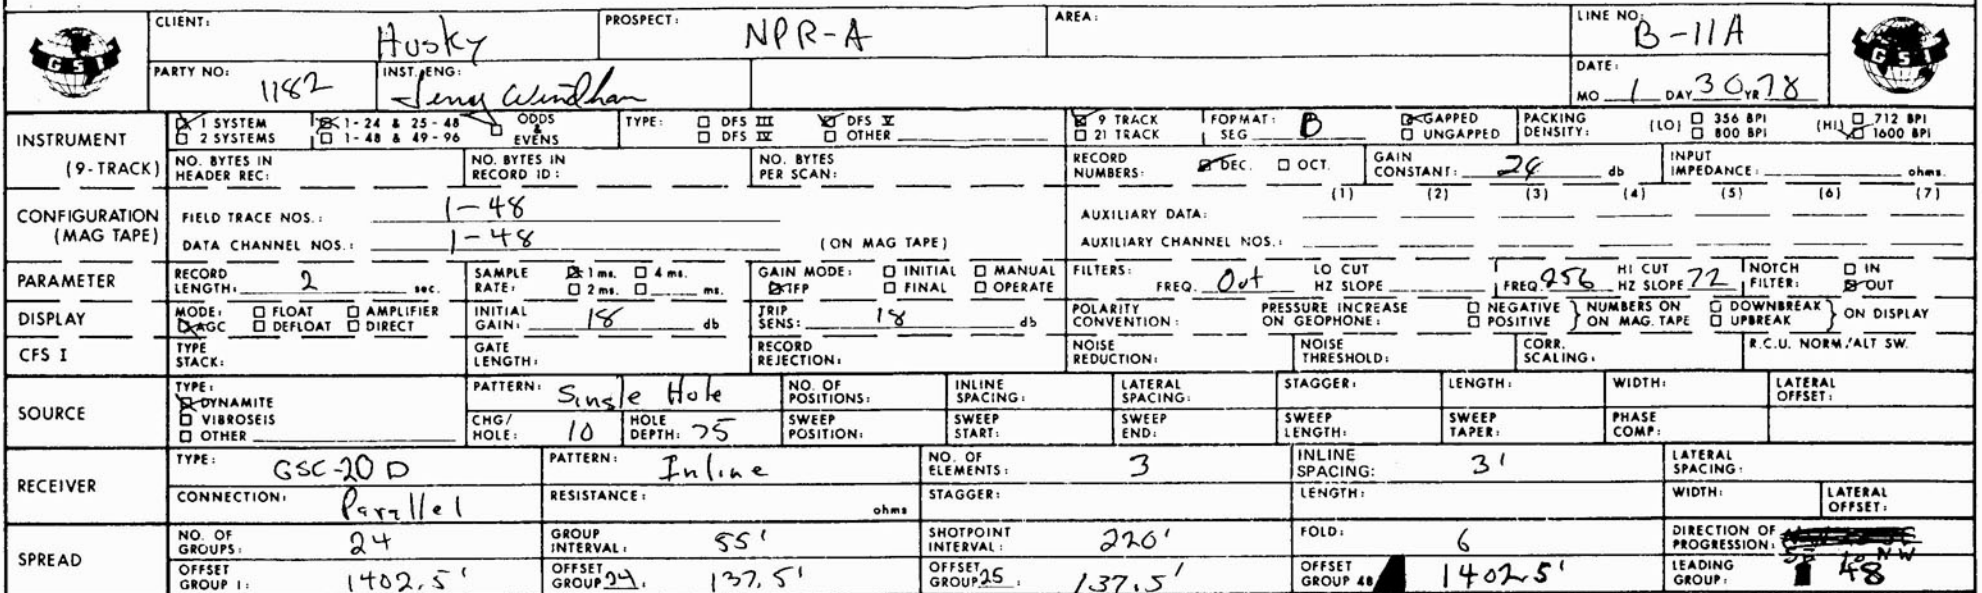 CLIENT: Husky PROSPECT: NPR-A AREA: LINE NO: B-11A
GSI GSI
PARTY NO: 1182 INST. ENG: Jerry Windham DATE: MO 1 DAY 30 YR 78
INSTRUMENT 1 SYSTEM 1-24 & 25-48 ODDS & EVENS TYPE: DFS III DFS V 9 TRACK FORMAT: SEG B GAPPED PACKING DENSITY: (LO) 356 BPI (HI) 712 BPI
(9-TRACK) 2 SYSTEMS 1-48 & 49-96 DFS IV OTHER 21 TRACK UNGAPPED 800 BPI 1600 BPI
NO. BYTES IN HEADER REC: NO. BYTES IN RECORD ID: NO. BYTES PER SCAN: RECORD NUMBERS: DEC. OCT. GAIN CONSTANT: 24 db INPUT IMPEDANCE: ohms.
CONFIGURATION (MAG TAPE) FIELD TRACE NOS.: 1-48 AUXILIARY DATA: (1) (2) (3) (4) (5) (6) (7)
DATA CHANNEL NOS.: 1-48 (ON MAG TAPE) AUXILIARY CHANNEL NOS.:
PARAMETER RECORD LENGTH: 2 sec. SAMPLE RATE: 1 ms. 4 ms. 2 ms. ms. GAIN MODE: INITIAL MANUAL IFP FINAL OPERATE FILTERS: FREQ. Out LO CUT HZ SLOPE FREQ 256 HI CUT HZ SLOPE 72 NOTCH FILTER: IN OUT
DISPLAY MODE: FLOAT AMPLIFIER AGC DEFLOAT DIRECT INITIAL GAIN: 18 db TRIP SENS: 18 db POLARITY CONVENTION: PRESSURE INCREASE ON GEOPHONE: NEGATIVE POSITIVE } NUMBERS ON ON MAG. TAPE DOWNBREAK UPBREAK } ON DISPLAY
CFS I TYPE STACK: GATE LENGTH: RECORD REJECTION: NOISE REDUCTION: NOISE THRESHOLD: CORR. SCALING: R.C.U. NORM/ALT SW.
SOURCE TYPE: DYNAMITE VIBROSEIS OTHER PATTERN: Single Hole NO. OF POSITIONS: INLINE SPACING: LATERAL SPACING: STAGGER: LENGTH: WIDTH: LATERAL OFFSET:
CHG/HOLE: 10 HOLE DEPTH: 75 SWEEP POSITION: SWEEP START: SWEEP END: SWEEP LENGTH: SWEEP TAPER: PHASE COMP:
RECEIVER TYPE: GSC-20 D PATTERN: Inline NO. OF ELEMENTS: 3 INLINE SPACING: 3' LATERAL SPACING:
CONNECTION: Parallel RESISTANCE: ohms STAGGER: LENGTH: WIDTH: LATERAL OFFSET:
SPREAD NO. OF GROUPS: 24 GROUP INTERVAL: 55' SHOTPOINT INTERVAL: 220' FOLD: 6 DIRECTION OF PROGRESSION: SE to NW
OFFSET GROUP 1: 1402.5' OFFSET GROUP 24: 137.5' OFFSET GROUP 25: 137.5' OFFSET GROUP 48 1402.5' LEADING GROUP: 48